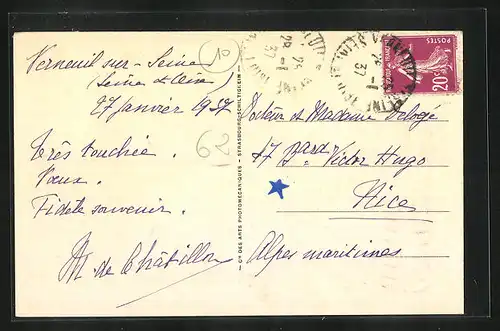 Verneuil-sur-Seine
(Seine et Oise)
27 janvier 1937
Très touchée.
Vœux.
Fidèle souvenir.
M. de Châtillon
Docteur et Madame Delogé
47 Bard Victor Hugo
Nice
Alpes maritimes
POSTES
20c
37
37
10
29
CIE DES ARTS PHOTOMÉCANIQUES - STRASBOURG-SCHILTIGHEIM